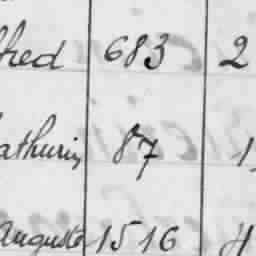 fred 683 2
athurin 87 1
Auguste 1516 4